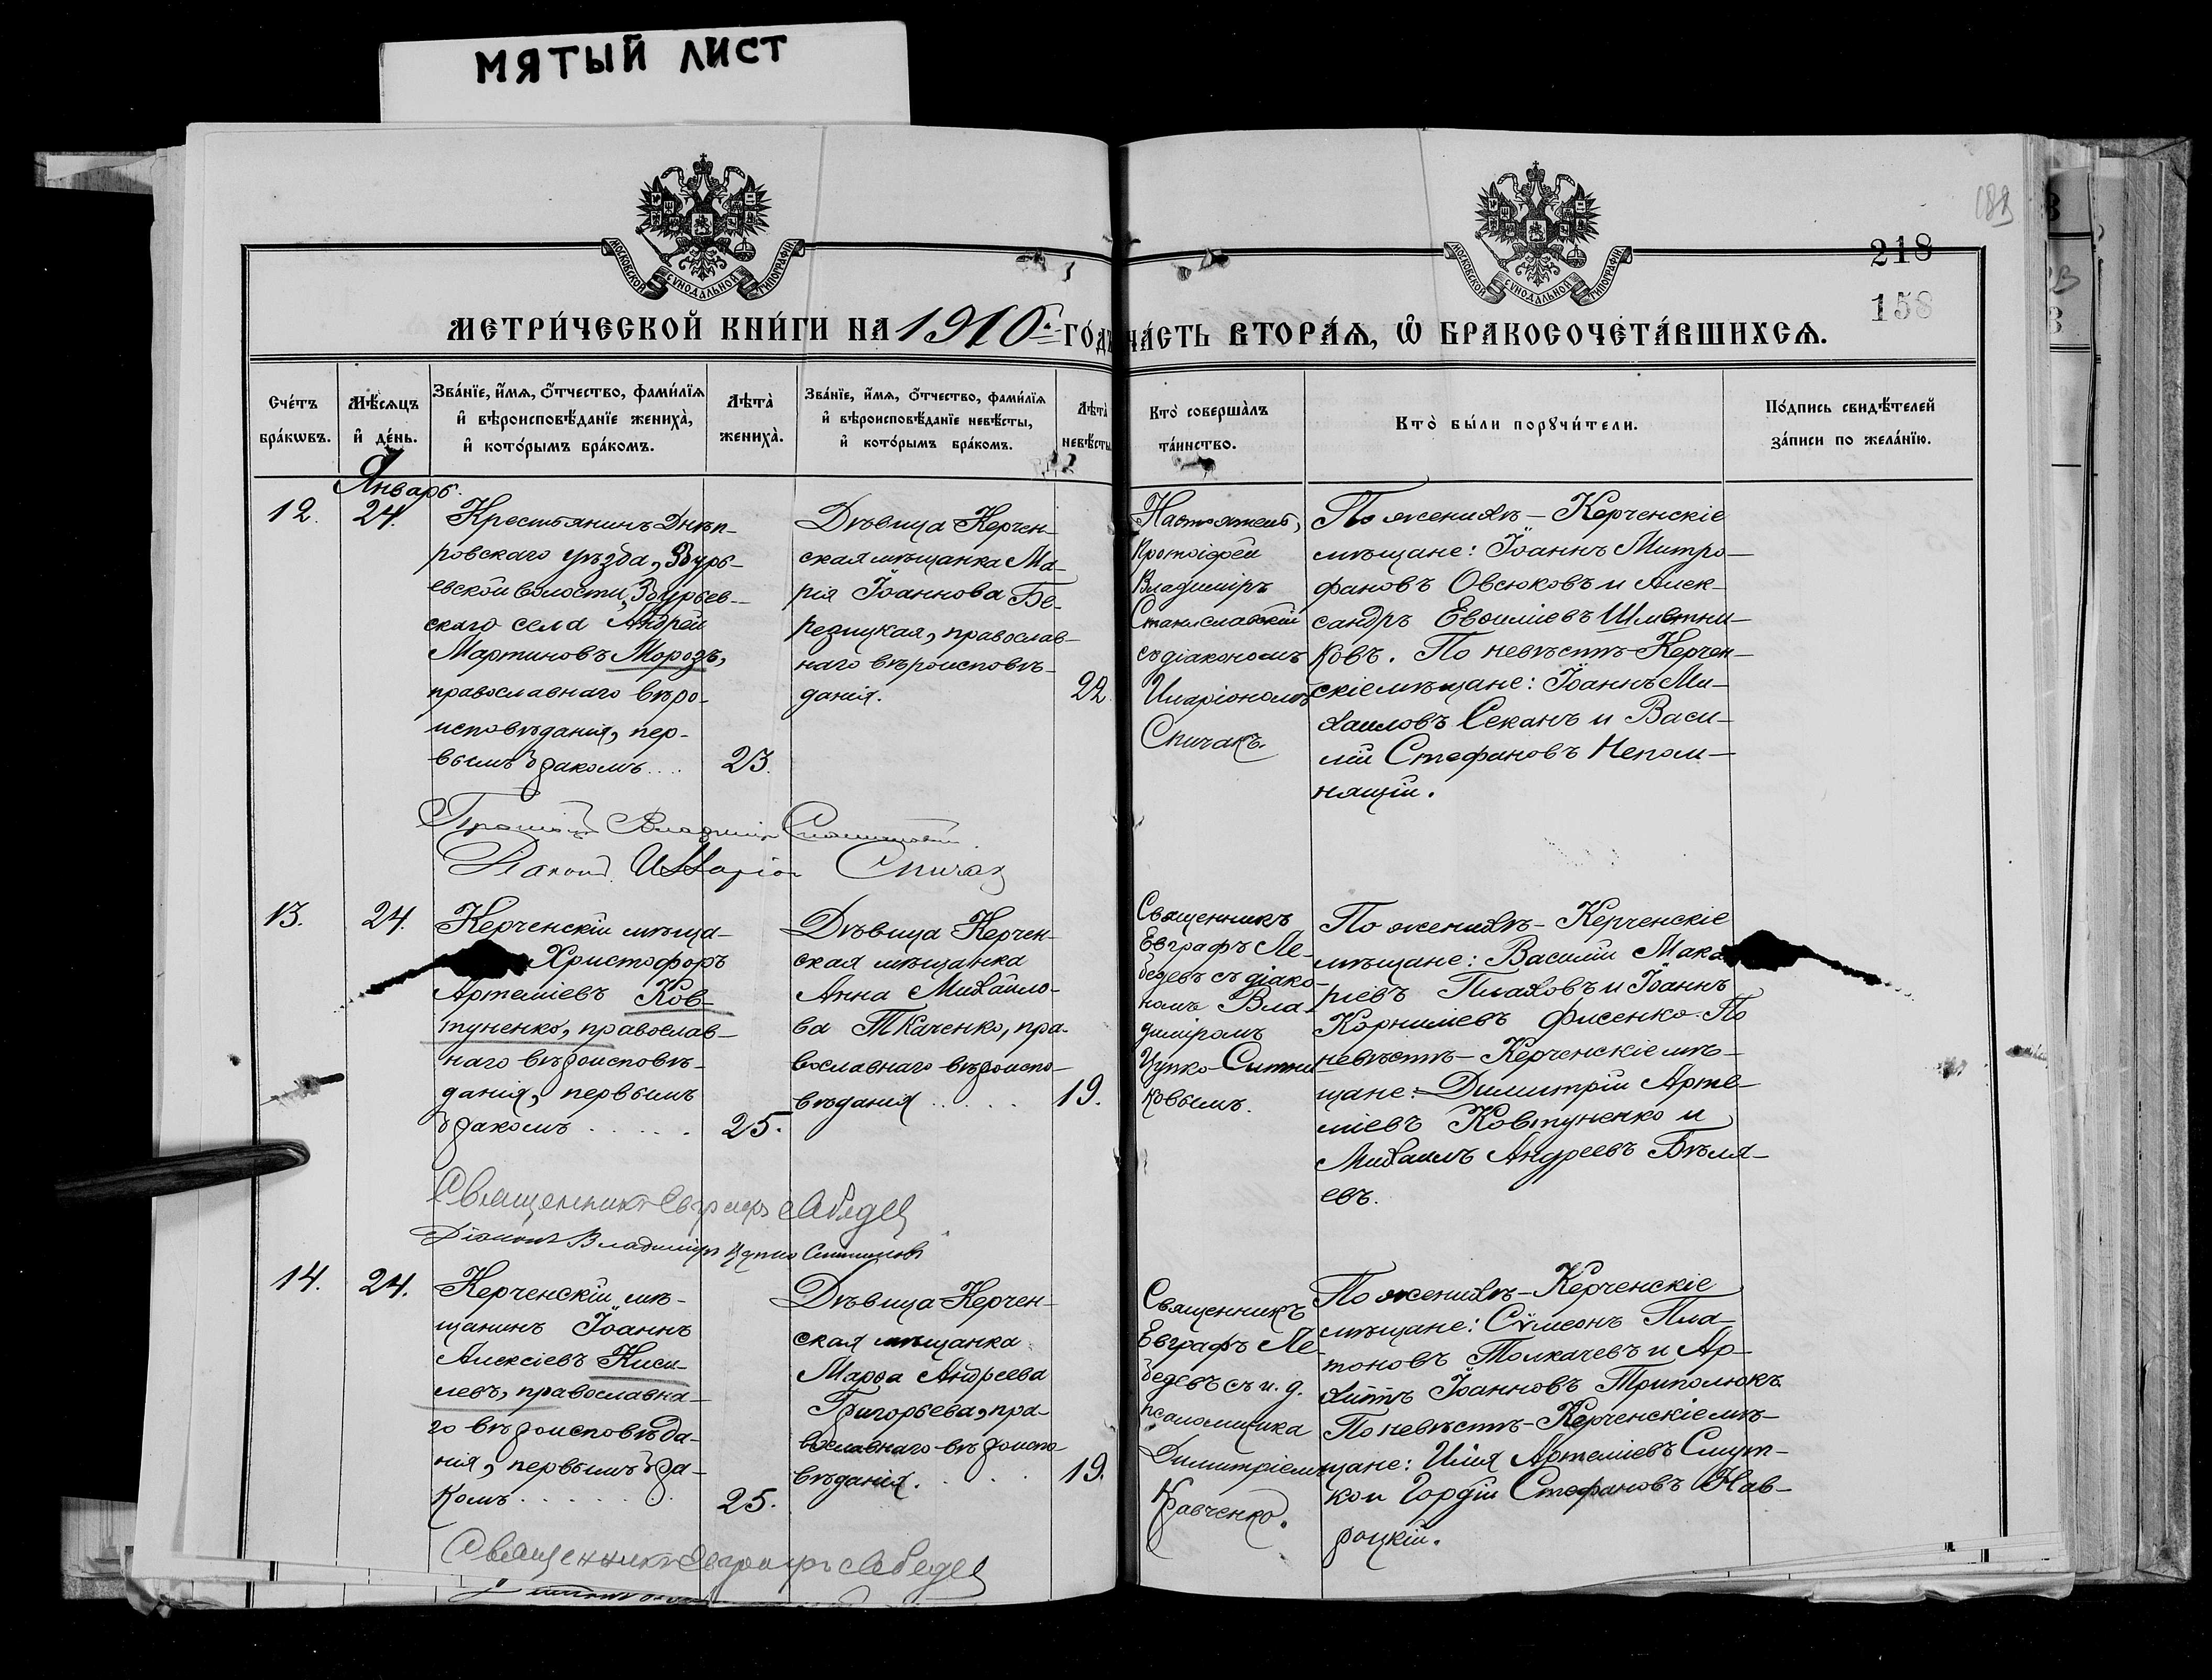 МЯТЫЙ ЛИСТ
МОСКОВСКОЙ СѴНОДАЛЬНОЙ ТИПОГРАФІИ
МОСКОВСКОЙ СѴНОДАЛЬНОЙ ТИПОГРАФІИ
218
158
МЕТРИ́ЧЕСКОЙ КНИ́ГИ НА 1910 ГО́ДЪ
ЧА́СТЬ ВТОРА́Ѧ, Ѡ҆ БРАКОСОЧЕТА́ВШИХСѦ.
Сче́тъ бра́кѡвъ.
Мѣ́сѧцъ и҆ де́нь.
Зва́нїе, и҆́мѧ, ѻ҆́тчество, фами́лїѧ и҆ вѣроисповѣ́данїе жениха̀, и҆ кото́рымъ бра́комъ.
Лѣта̀ жениха̀.
Зва́нїе, и҆́мѧ, ѻ҆́тчество, фами́лїѧ и҆ вѣроисповѣ́данїе невѣ́сты, и҆ кото́рымъ бра́комъ.
Лѣта̀ невѣ́сты
Кто̀ соверша̀лъ та́инство.
Кто̀ бы́ли порꙋчи́тели.
По́дпись свидѣ́телей за́писи по жела́нїю.
Январь.
12.
24.
Крестьянинъ Днѣп-
ровскаго уѣзда, Збурь-
евской волости, Збурьев-
скаго села Андрей
Мартиновъ Морозъ,
православнаго вѣро-
исповѣданія, пер-
вымъ бракомъ....
23.
Дѣвица Керчен-
ская мѣщанка Ма-
рія Іоаннова Бе-
резицкая, православ-
наго вѣроисповѣ-
данія.
22
Настоятель,
Протоіерей
Владиміръ
Станиславскій
съ діакономъ
Иларіономъ
Спичакъ.
По женихѣ – Керченскіе
мѣщане: Іоаннъ Митро-
фановъ Овсюковъ и Алек-
сандръ Евѳиміевъ Шметни-
ковъ. По невѣстѣ – Керчен-
скіе мѣщане: Іоаннъ Ми-
хаиловъ Секанъ и Васи-
лій Стефановъ Непом-
нящій.
Владиміръ
Діаконъ Иларіон Спичак
13.
24.
Керченскій мѣща-
Христофоръ
Артеміевъ Ков-
туненко, православ-
наго вѣроисповѣ-
данія, первымъ
бракомъ . . . . .
25.
Дѣвица Керчен-
ская мѣщанка
Анна Михайло-
ва Ткаченко, пра-
вославнаго вѣроиспо-
вѣданія . . . . .
19.
Священникъ
Евграфъ Ле-
бедевъ съ діако-
номъ Вла-
диміромъ
Цупко-Ситни
ковымъ.
По женихѣ – Керченскіе
мѣщане: Василій Мака
ріевъ Плаховъ и Іоаннъ
Корниліевъ Фисенко. По
невѣстѣ – Керченскіе мѣ-
щане: Димитрій Арте-
міевъ Ковтуненко и
Михаилъ Андреевъ Бѣля-
евъ.
Священникъ Евграфъ Лебедев
Діаконъ Владиміръ Цупко Ситников
14.
24.
Керченскій мѣ-
щанинъ Іоаннъ
Алексіевъ Киси-
левъ, православна-
го вѣроисповѣда-
нія, первымъ бра-
комъ . . . . . . .
25.
Дѣвица Керчен-
ская мѣщанка
Марѳа Андреева
Григорьева, пра-
вославнаго вѣроиспо-
вѣданія. . . . .
19.
Священникъ
Евграфъ Ле-
бедевъ съ и. д.
псаломщика
Димитріемъ
Кравченко.
По женихѣ – Керченскіе
мѣщане: Сѵмеонъ Пла-
тоновъ Толкачевъ и Ар-
хиппъ Іоанновъ Триполюкъ.
По невѣстѣ – Керченскіе мѣ-
щане: Илія Артеміевъ Смут-
ко и Гордій Стефановъ Нав-
роцкій.
Священникъ Евграфъ Лебедев